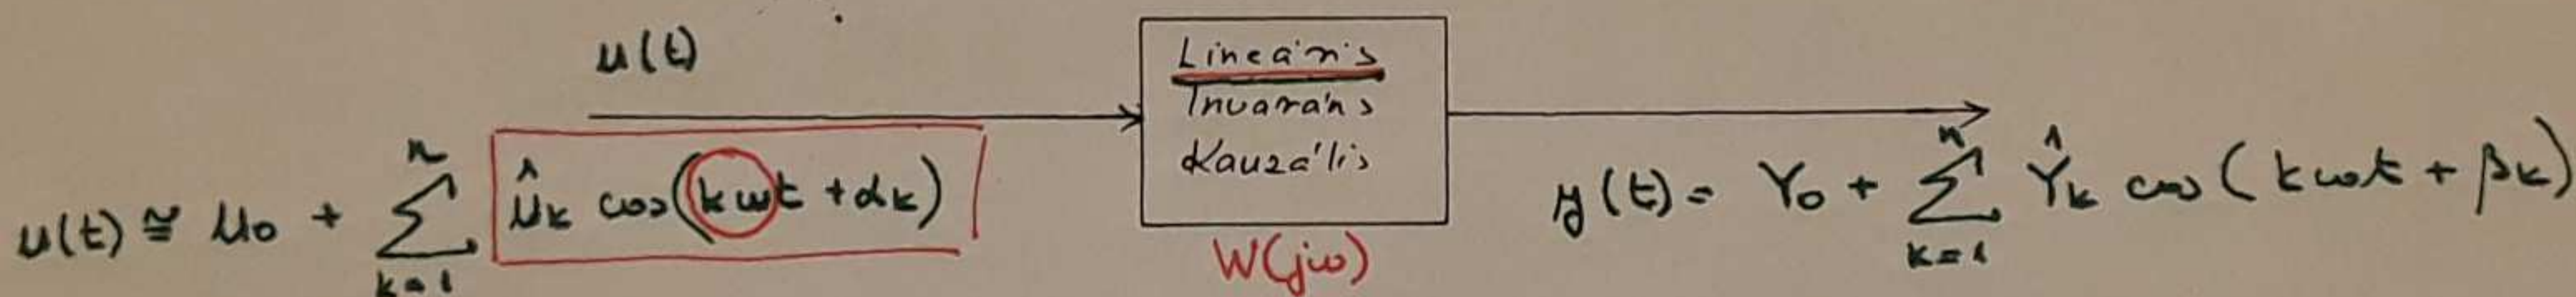 u(t)
Lineáris
Invaráns
Kauzális
u(t) ≅ U₀ + ∑ₖ₌₁ⁿ Ûₖ cos(kωt + αₖ)
W(jω)
y(t) = Y₀ + ∑ₖ₌₁ⁿ Ŷₖ cos(kωt + βₖ)